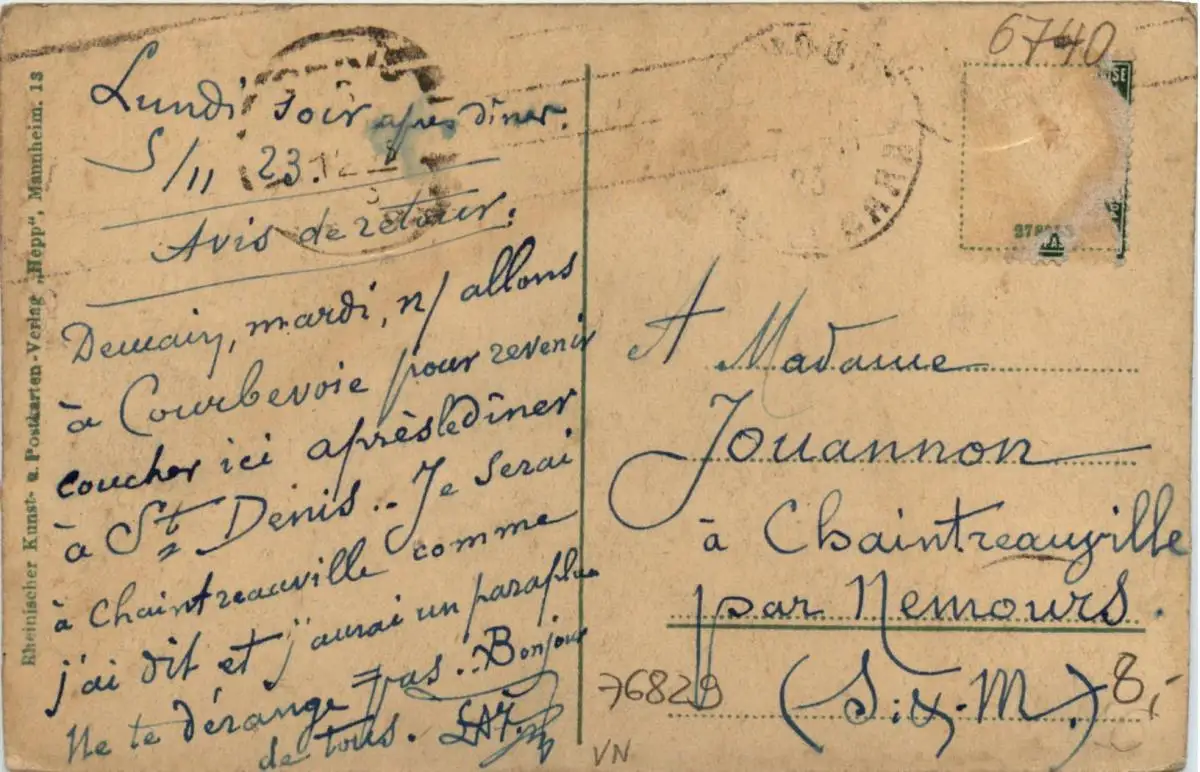 Lundi soir après dîner.
5/11 23.
Avis de retour.
Demain, mardi, n/ allons
à Courbevoie pour revenir
coucher ici après le dîner
à St Denis.. Je serai
à Chaintreauville comme
j'ai dit et j'aurai un parapluie
Ne te dérange pas.. Bonjour
de tous.
Rheinischer Kunst- u. Postkarten-Verlag „Hepp“, Mannheim. 18
6740
A Madame
Jouannon
à Chaintreauville
par Nemours.
(S. & M.)
76829
8,-
VN